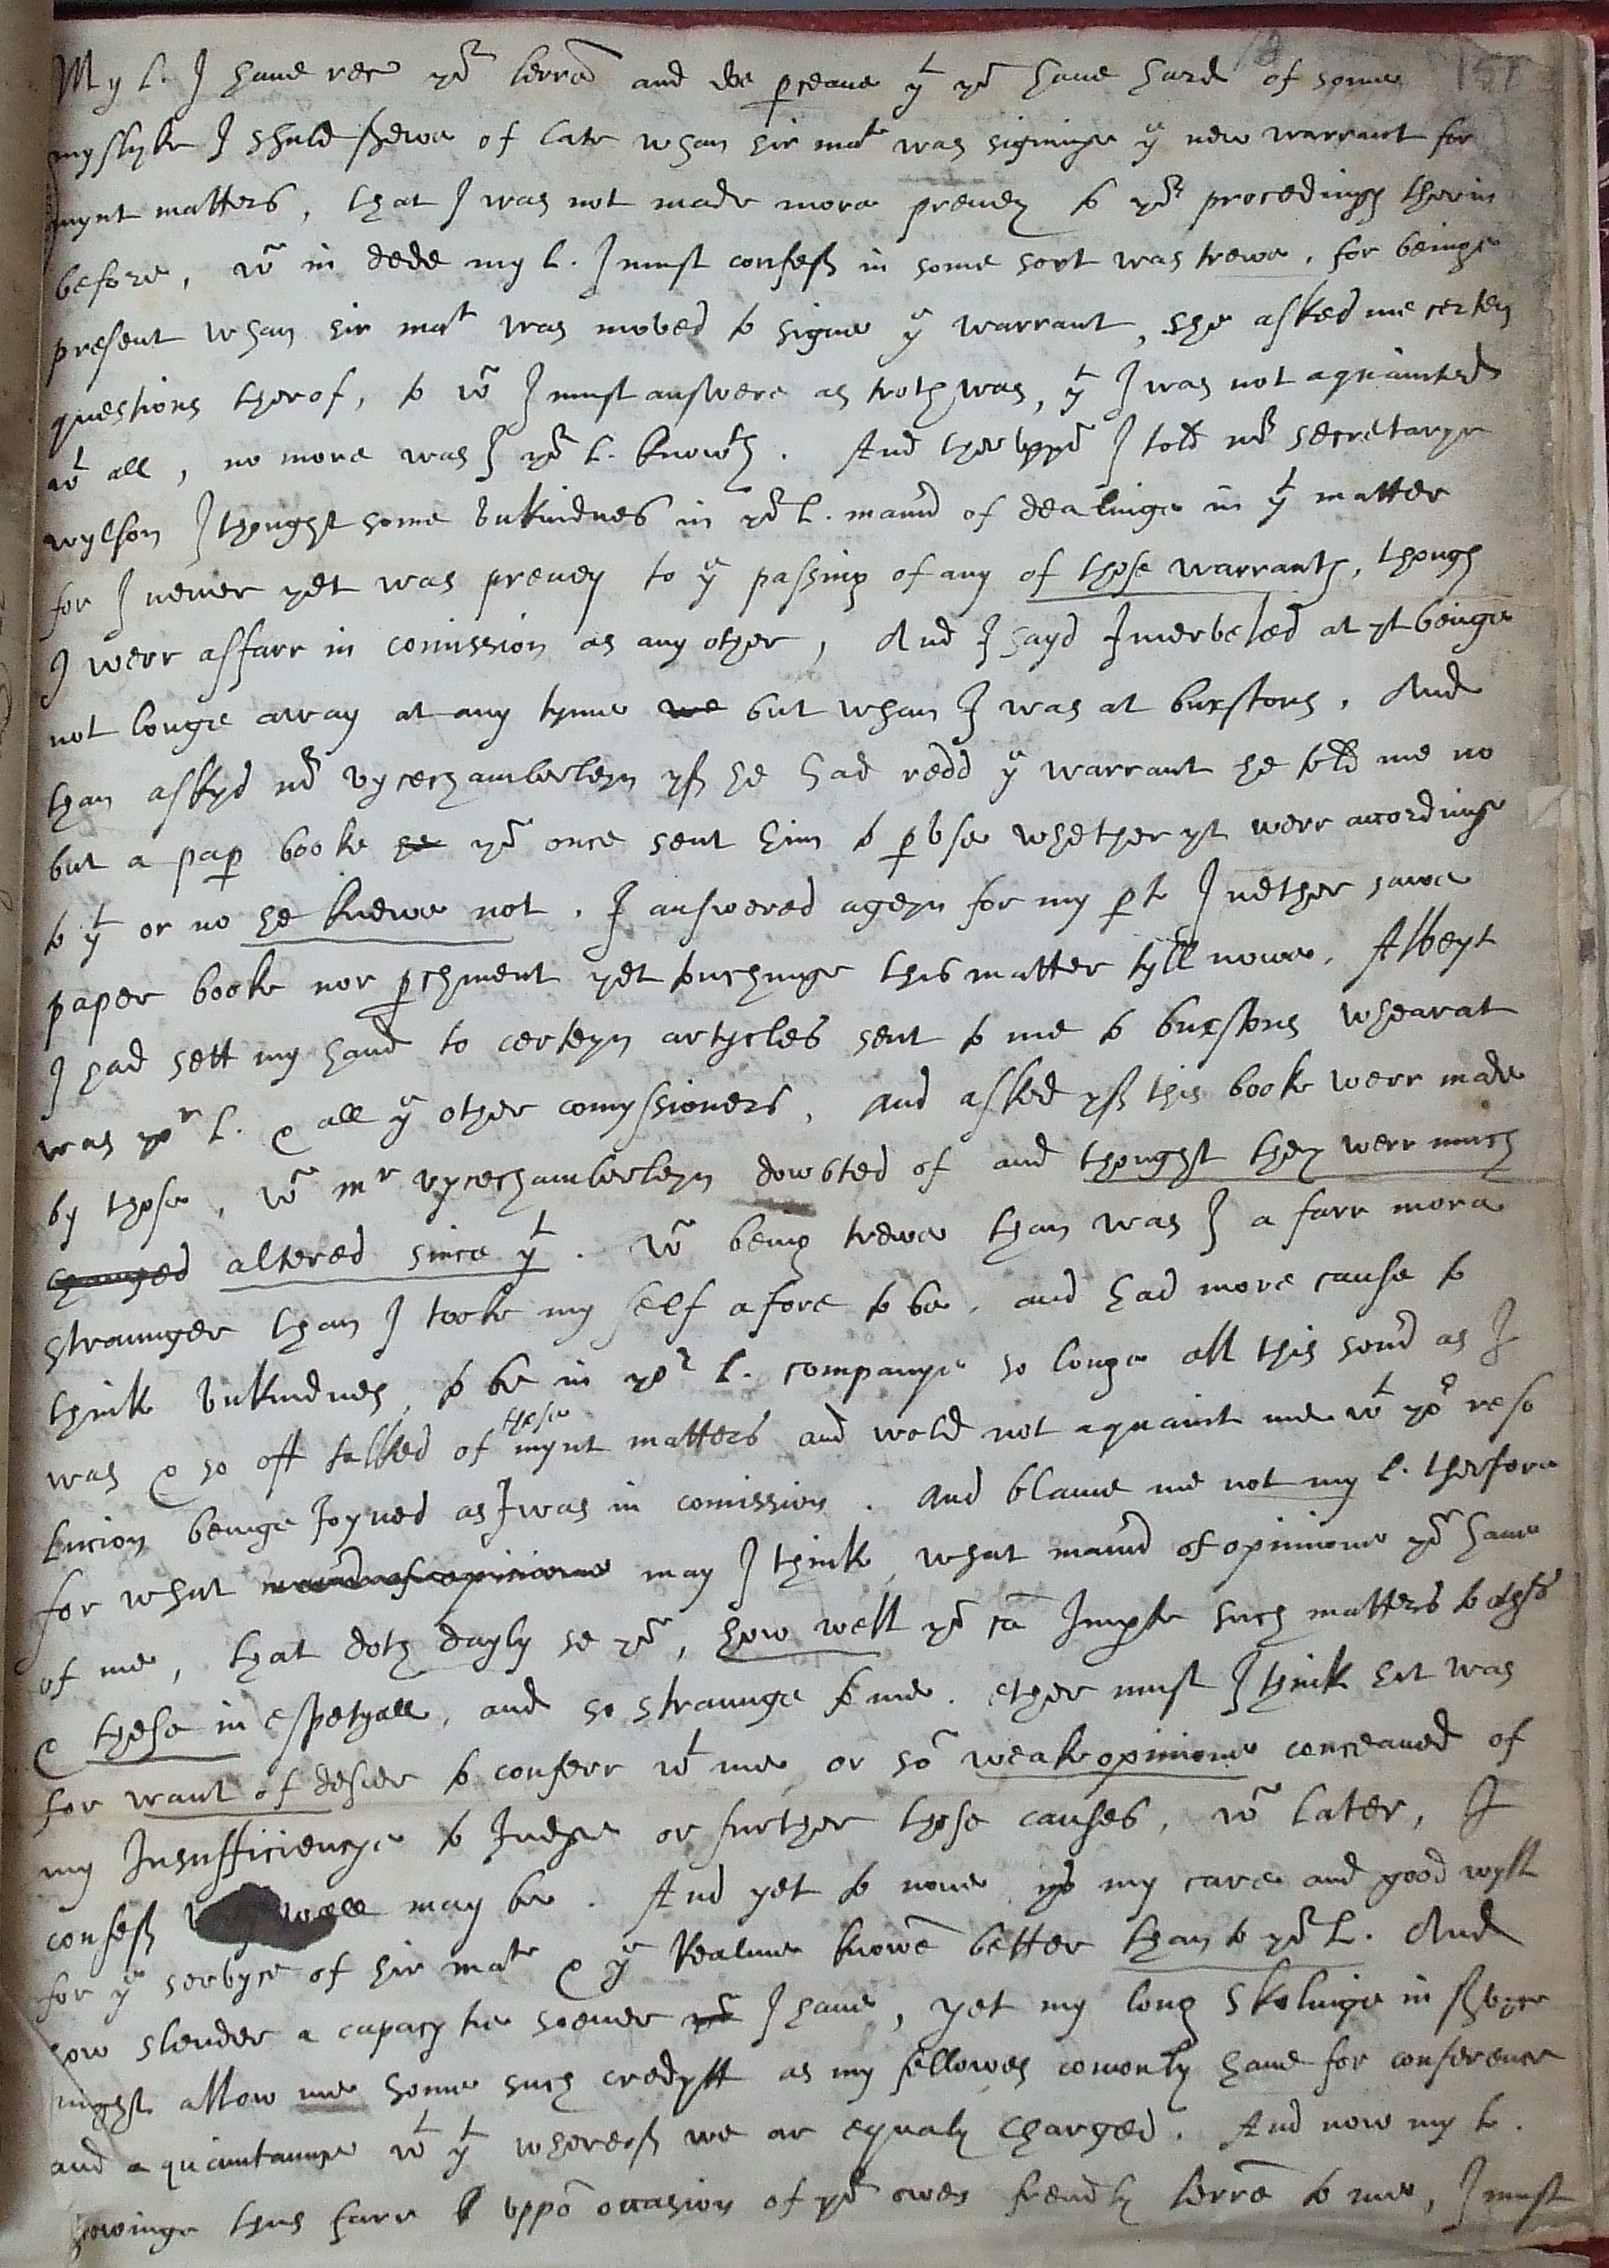 157
My l. I haue rec yor lettre and do pceaue yt yow haue hard of some
myslyke I shuld shewe of late whan hir mate was signinge ye new warrant for
mynt matters, that I was not made more preuey to yor procedings therin
before, wch in dede my l. I must confess in some sort was trewe, for beinge
present whan hir mate was moved to signe ye warrant, she asked me certen
questions therof, to wch I must answere as troth was, yt I was not aquainted
wt all, no more was I yor l. knowth. And ther vppon I told mr secretarye
wylson I thought some vnkindnes in yor l. maner of dealinge in yt matter
for I neuer yet was preuey to ye passing of any of those warrants, though
I were asfarr in comission as any other, And I sayd I merveled at yt beinge
not longe away at any tyme we but whan I was at buxstons. And
than askyd mr vycechamberleyn yf he had redd ye warrant he told me no
but a pap booke he yow once sent him to pvse whether yt were accordinge
to yt or no he knewe not. I answered ageyn for my pt I nether sawe
paper booke nor pchment yet touchinge this matter tyll nowe. Albeyt
I had sett my hand to certeyn artycles sent to me to buxstons whearat
was yor l. & all ye other comyssioners, and asked yf this booke were made
by those, wch mr vycechamberleyn dowbted of and thought they were much
changed altered since yt. wch being trewe than was I a farr more
straunger than I tooke my self afore to be, and had more cause to
think vnkindnes, to be in yor l. companye so longe all this somer as I
was & so oft talked of these mynt matters and wold not aquaint me wt yor reso
lucion beinge Joyned as I was in comission. And blame me not my l. therfore
for what maner of opinione may I think, what maner of opinione yow haue
of me, that doth dayly se yow, how well yow can Impte such matters to others
& these in espetyall, and so straunge to me. ether must I think hit was
for want of desier to conferr wt me or som weake opinione conceaued of
my Insufficiencye to Judge or further those causes, wch later, I
confess well may be. And yet to none yo my care and good wyll
for ye servyce of hir mate & ye Realme knowen better than to yor l. And
how slender a capacytie soeuer yow I haue, yet my long skolinge in
might allow me some such credytt as my fellowes comonly haue for conference
and aquaintaunce wt yt whereof we ar equaly charged. And now my l.
thus farr vppon occasion of yor owen frendly lettre to me, I must